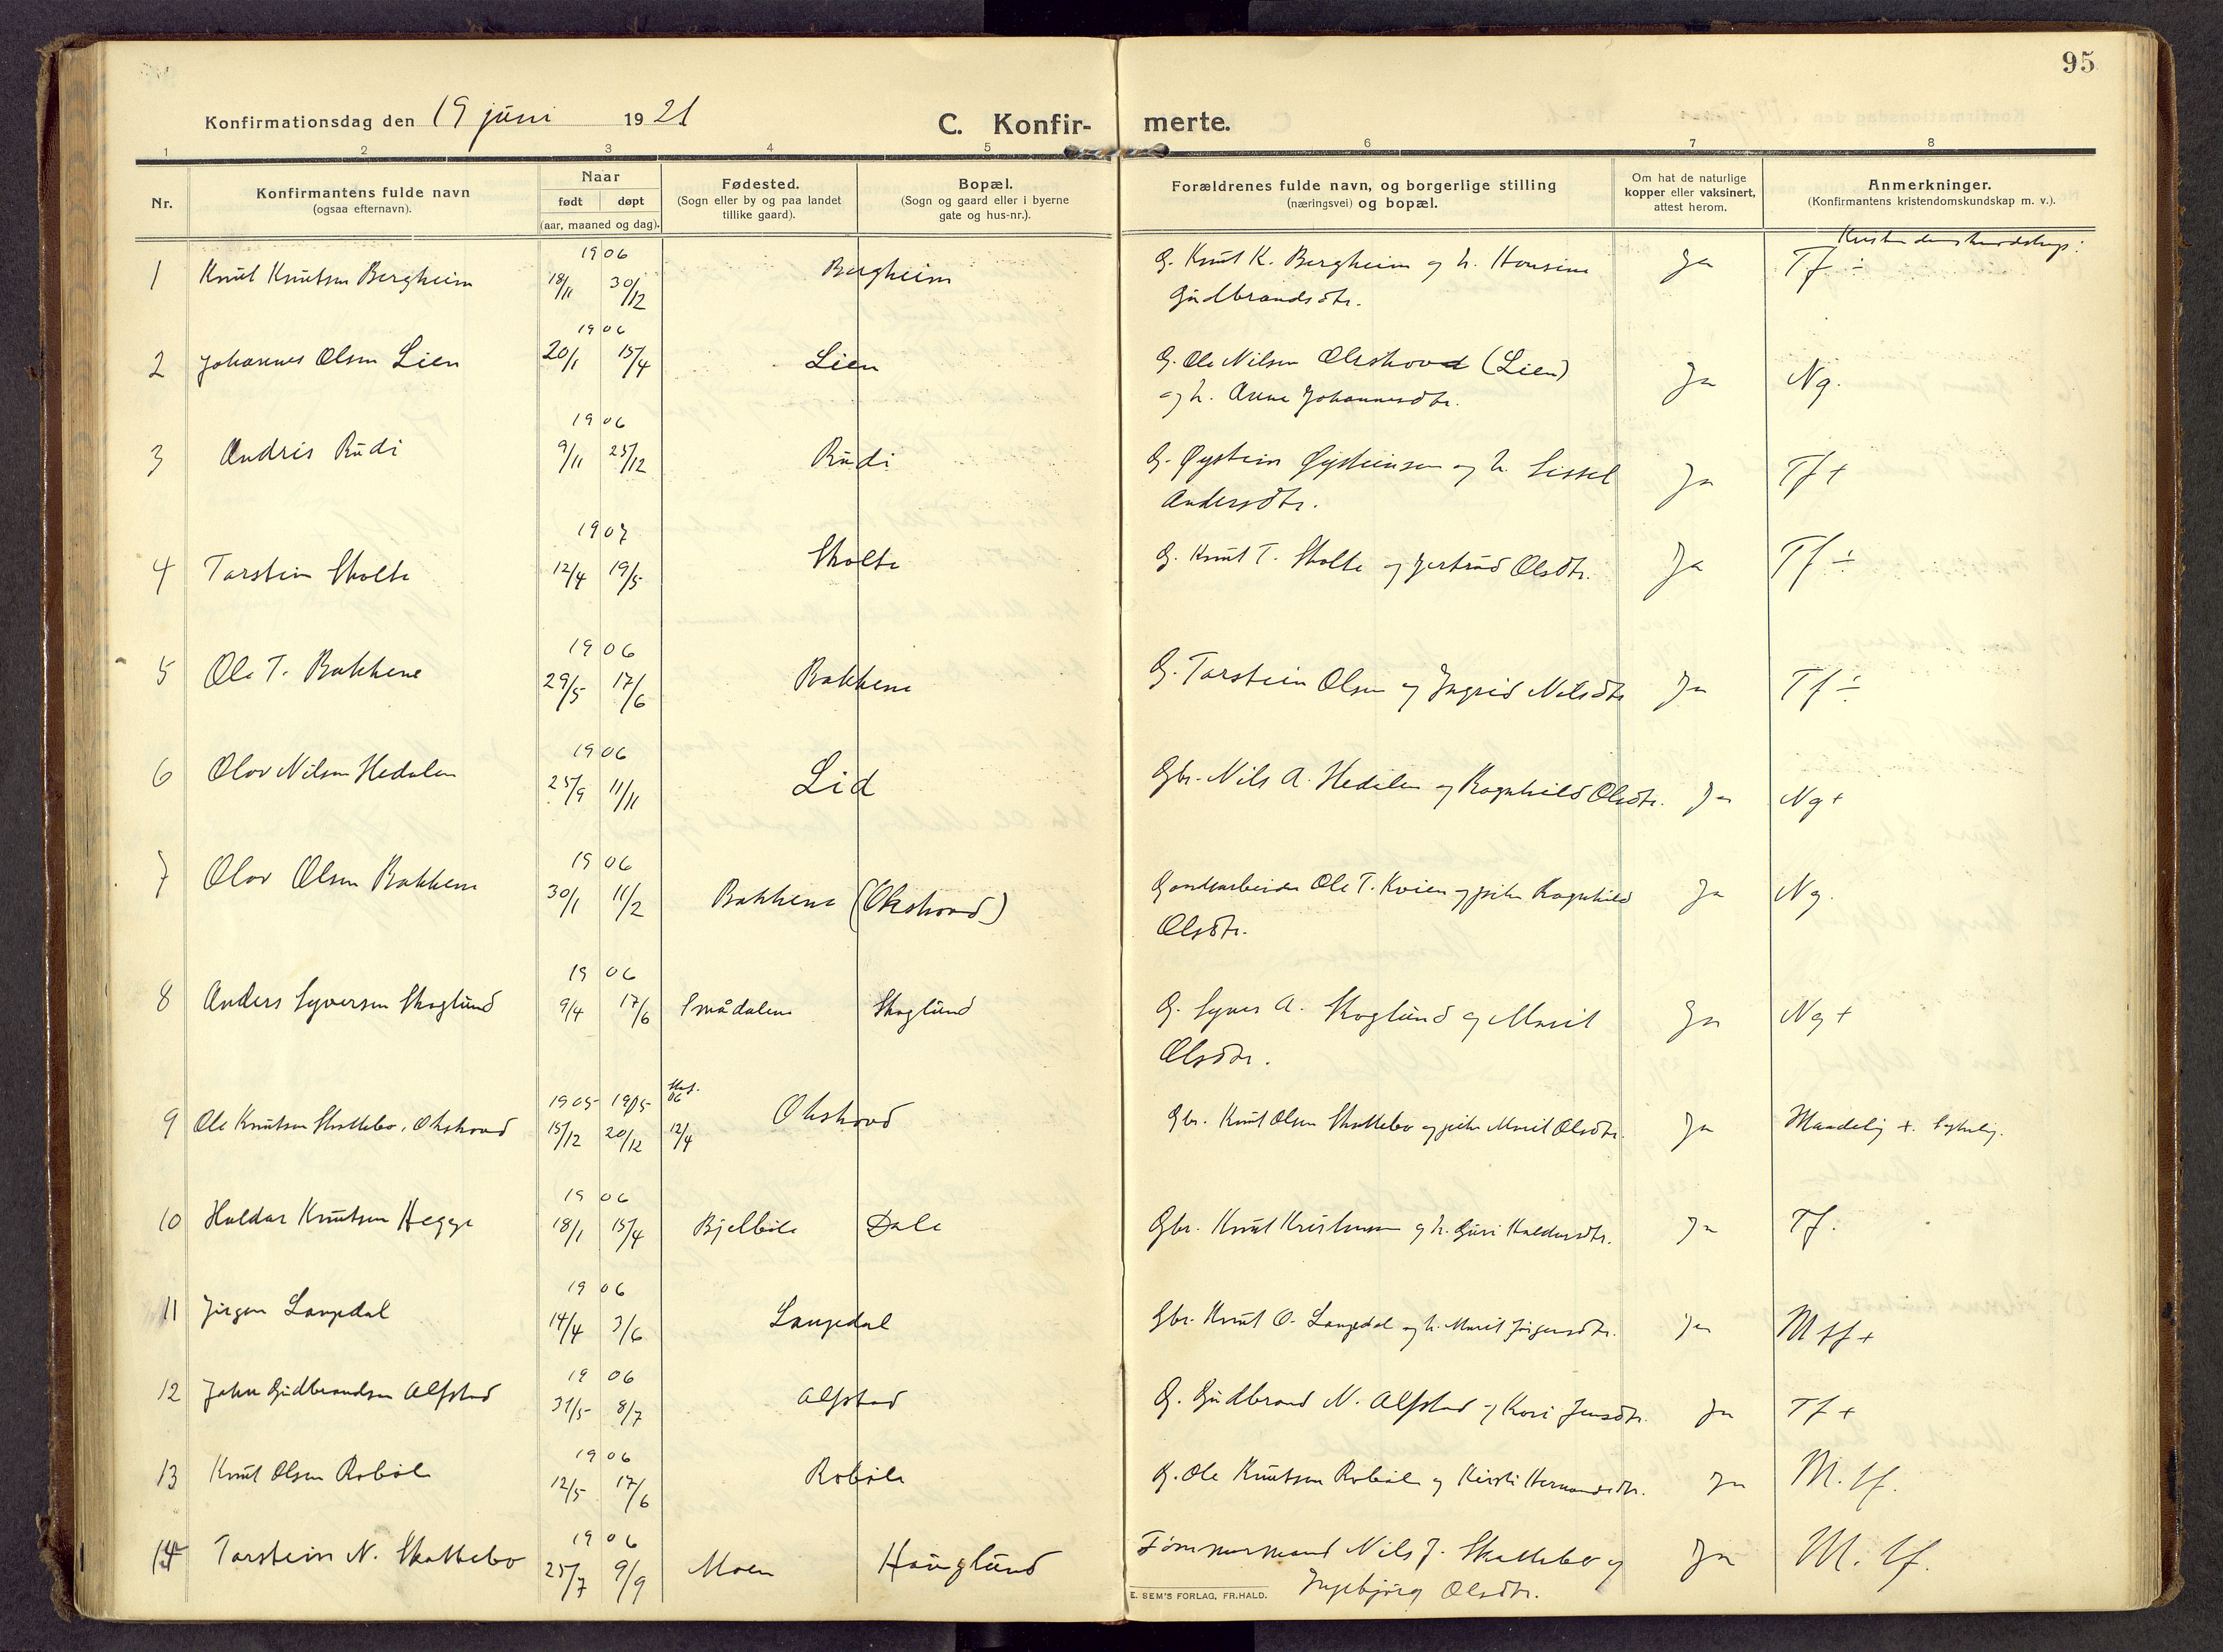 95
Konfirmationsdag den 19 juni 1921
C. Konfir- merte.
1 2 3 4 5 6 7 8
Nr.
Konfirmantens fulde navn
(ogsaa efternavn).
Naar
født døpt
(aar, maaned og dag).
Fødested.
(Sogn eller by og paa landet
tillike gaard).
Bopæl.
(Sogn og gaard eller i byerne
gate og hus-nr.).
Forældrenes fulde navn, og borgerlige stilling
(næringsvei) og bopæl.
Om hat de naturlige
kopper eller vaksinert,
attest herom.
Anmerkninger.
(Konfirmantens kristendomskundskap m. v.).
Kristendomskundskap:
1906
1 Knut Knutsen Bergheim 18/11 30/12 Bergheim G. Knut K. Bergheim og h. Ja Tf ÷
Gudbrandsdtr.
1906
2 Johannes Olsen Lien 20/1 15/4 Lien G. Ole Nilsen (Lien) Ja Ng.
og h. Anne Johannesdtr.
1906
3 Andris Rudi 9/11 25/12 Rudi G. Øystein Øysteinsen og h. Sissel Ja Tf +
Andersdtr.
1907
4 Torstein Skolte 12/4 19/5 Skolte G. Knut T. Skolte og Jertrud Olsdtr. Ja Tf ÷
1906
5 Ole T. Bakkene 29/5 17/6 Bakkene G. Torstein Olsen og Ingrid Nilsdtr Ja Tf ÷
1906
6 Olav Nilsen Hedalen 25/9 11/11 Lid Gbr. Nils A. Hedalen og Ragnhild Olsdtr. Ja Ng +
1906
7 Olav Olsen Bakkene 30/1 11/2 Bakkene (Okshovd) Ole T. Kvien og pike Ragnhild Ja Ng.
Olsdtr.
1906
8 Anders Syversen Skoglund 9/4 17/6 Smådalen Skoglund G. Syver A. Skoglund og Marit Ja Ng +
Olsdtr.
1905 1905 06
9 Ole Knutsen Skattebo, Okshovd 15/12 20/12 12/4 Okshovd Gbr. Knut Olsen Skattebo og pike Marit Olsdtr. Ja Maadelig +.
1906
10 Haldor Knutsen Hegge 18/1 15/4 Bjelbøle Dale Gbr. Knut Kristensen og h. Guri Haldorsdtr. Ja Tf.
1906
11 Jørgen Langedal 14/4 3/6 Langedal Gbr. Knut O. Langedal og h. Marit Jørgensdtr. Ja Mtf +
1906
12 John Gudbrandsen Alfstad 31/5 8/7 Alfstad G. Gudbrand N. Alfstad og Kari Jensdtr. Ja Tf +
1906
13 Knut Olsen Robøle 12/5 17/6 Robøle G. Ole Knutsen Robøle og Kirsti Hermandsdtr. Ja M. tf.
1906
14 Torstein N. Skattebo 25/7 9/9 Moen Hauglund Tømmermand Nils J. Skattebo og Ja M. tf.
Ingebjørg Olsdtr.
E. SEM'S FORLAG, FR.HALD.